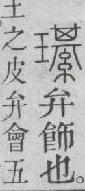 弁飾也。
王之皮弁會五